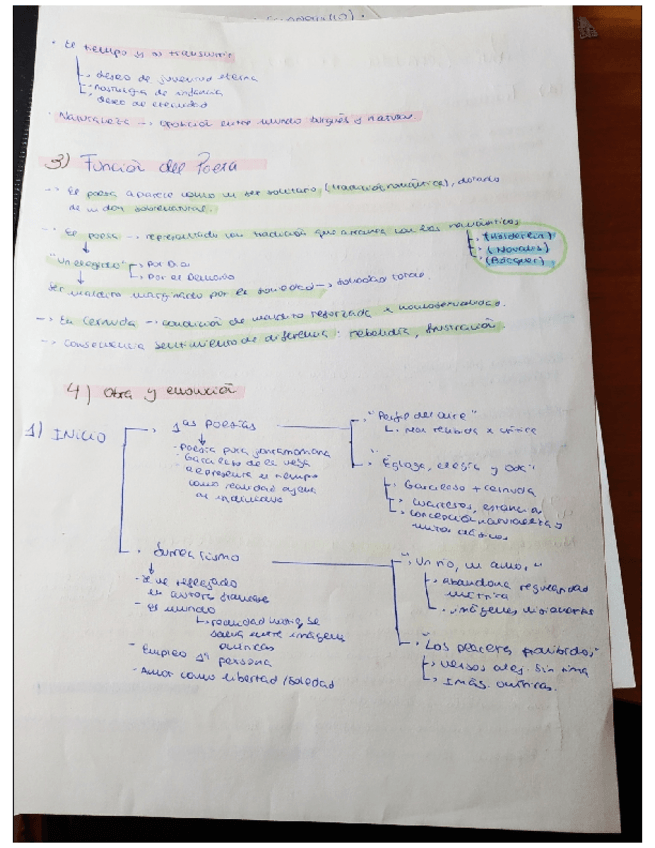 · El tiempo y su transcurrir
deseo de juventud eterna
nostalgia de infancia
deseo de eternidad
· Naturaleza → oposición entre mundo burgués y natural.
3) Función del Poeta
→ El poeta aparece como un ser solitario, (tradición romántica), dotado
de un don sobrenatural.
→ El poeta → representado con tradición que arranca con los románticos
(Hölderlin)
(Novalis)
(Bécquer)
"Un elegido" Por Dios
Por el Demonio
Ser maldito marginado por la sociedad → soledad total.
→ En Cernuda → condición de maldito reforzada x homosexualidad.
→ Consecuencia sentimiento de diferencia: rebeldía, frustración.
4) Obra y evolución
1) INICIO
1as POESÍAS
· Poesía pura juanramoniana
· Garcilaso de la Vega
representa el tiempo
como realidad ajena
al individuo
"Perfil del aire"
Mal recibida x crítica
"Égloga, elegía y oda"
Garcilaso + Cernuda
concepción naturaleza y
mitos clásicos
Surrealismo
· Se ve reflejado
en autores franceses
- El mundo
realidad hostil, se
salva entre imágenes
oníricas
- Empleo 1ª persona
- Amor como libertad/soledad
"Un río, un amor,"
abandona regularidad
métrica
imágenes visionarias
"Los placeres prohibidos"
versos alej. sin rima
Imág. oníricas.